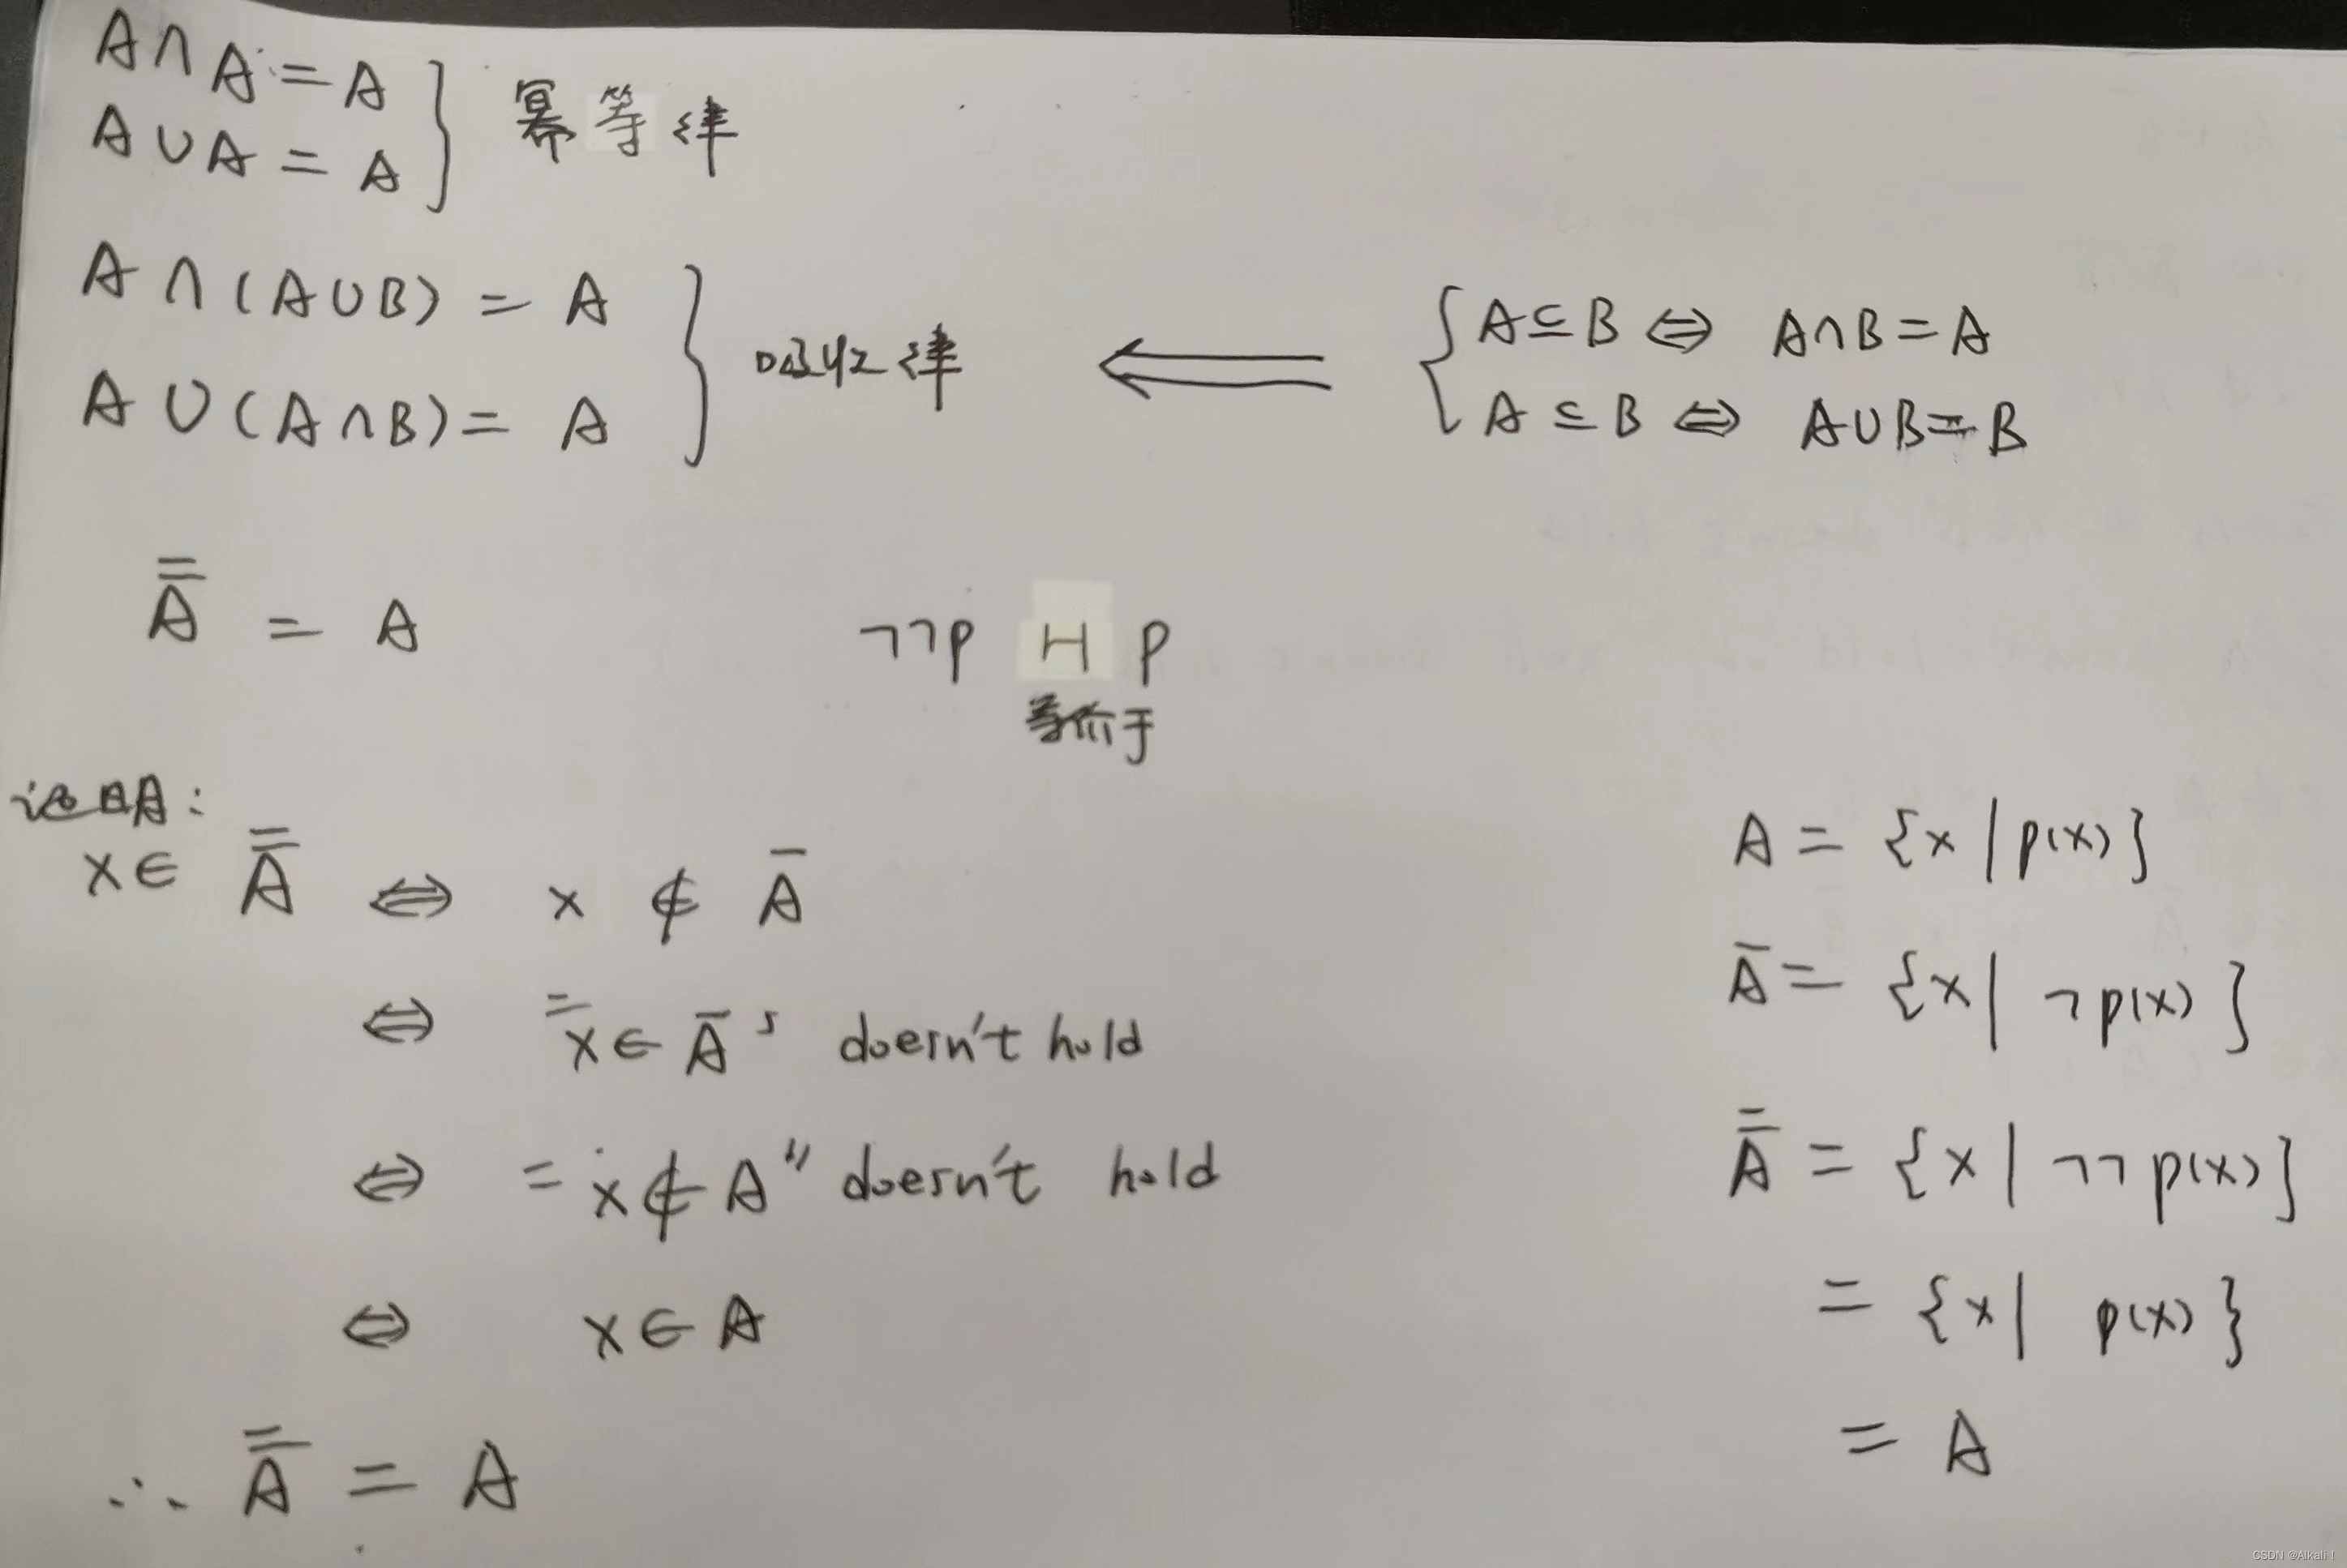 A∩A=A
A∪A=A } 幂等律
A∩(A∪B)=A
A∪(A∩B)=A } 吸收律 ⟸ { A⊆B⇔A∩B=A
A⊆B⇔A∪B=B
A̿ = A ¬¬p H p
等价于
证明:
x∈A̿ ⇔ x∉A̅
⇔ "x∈A̅" doesn't hold
⇔ "x∉A" doesn't hold
⇔ x∈A
∴ A̿ = A
A = {x|p(x)}
A̅ = {x|¬p(x)}
A̿ = {x|¬¬p(x)}
= {x|p(x)}
= A
CSDN @Alkali!